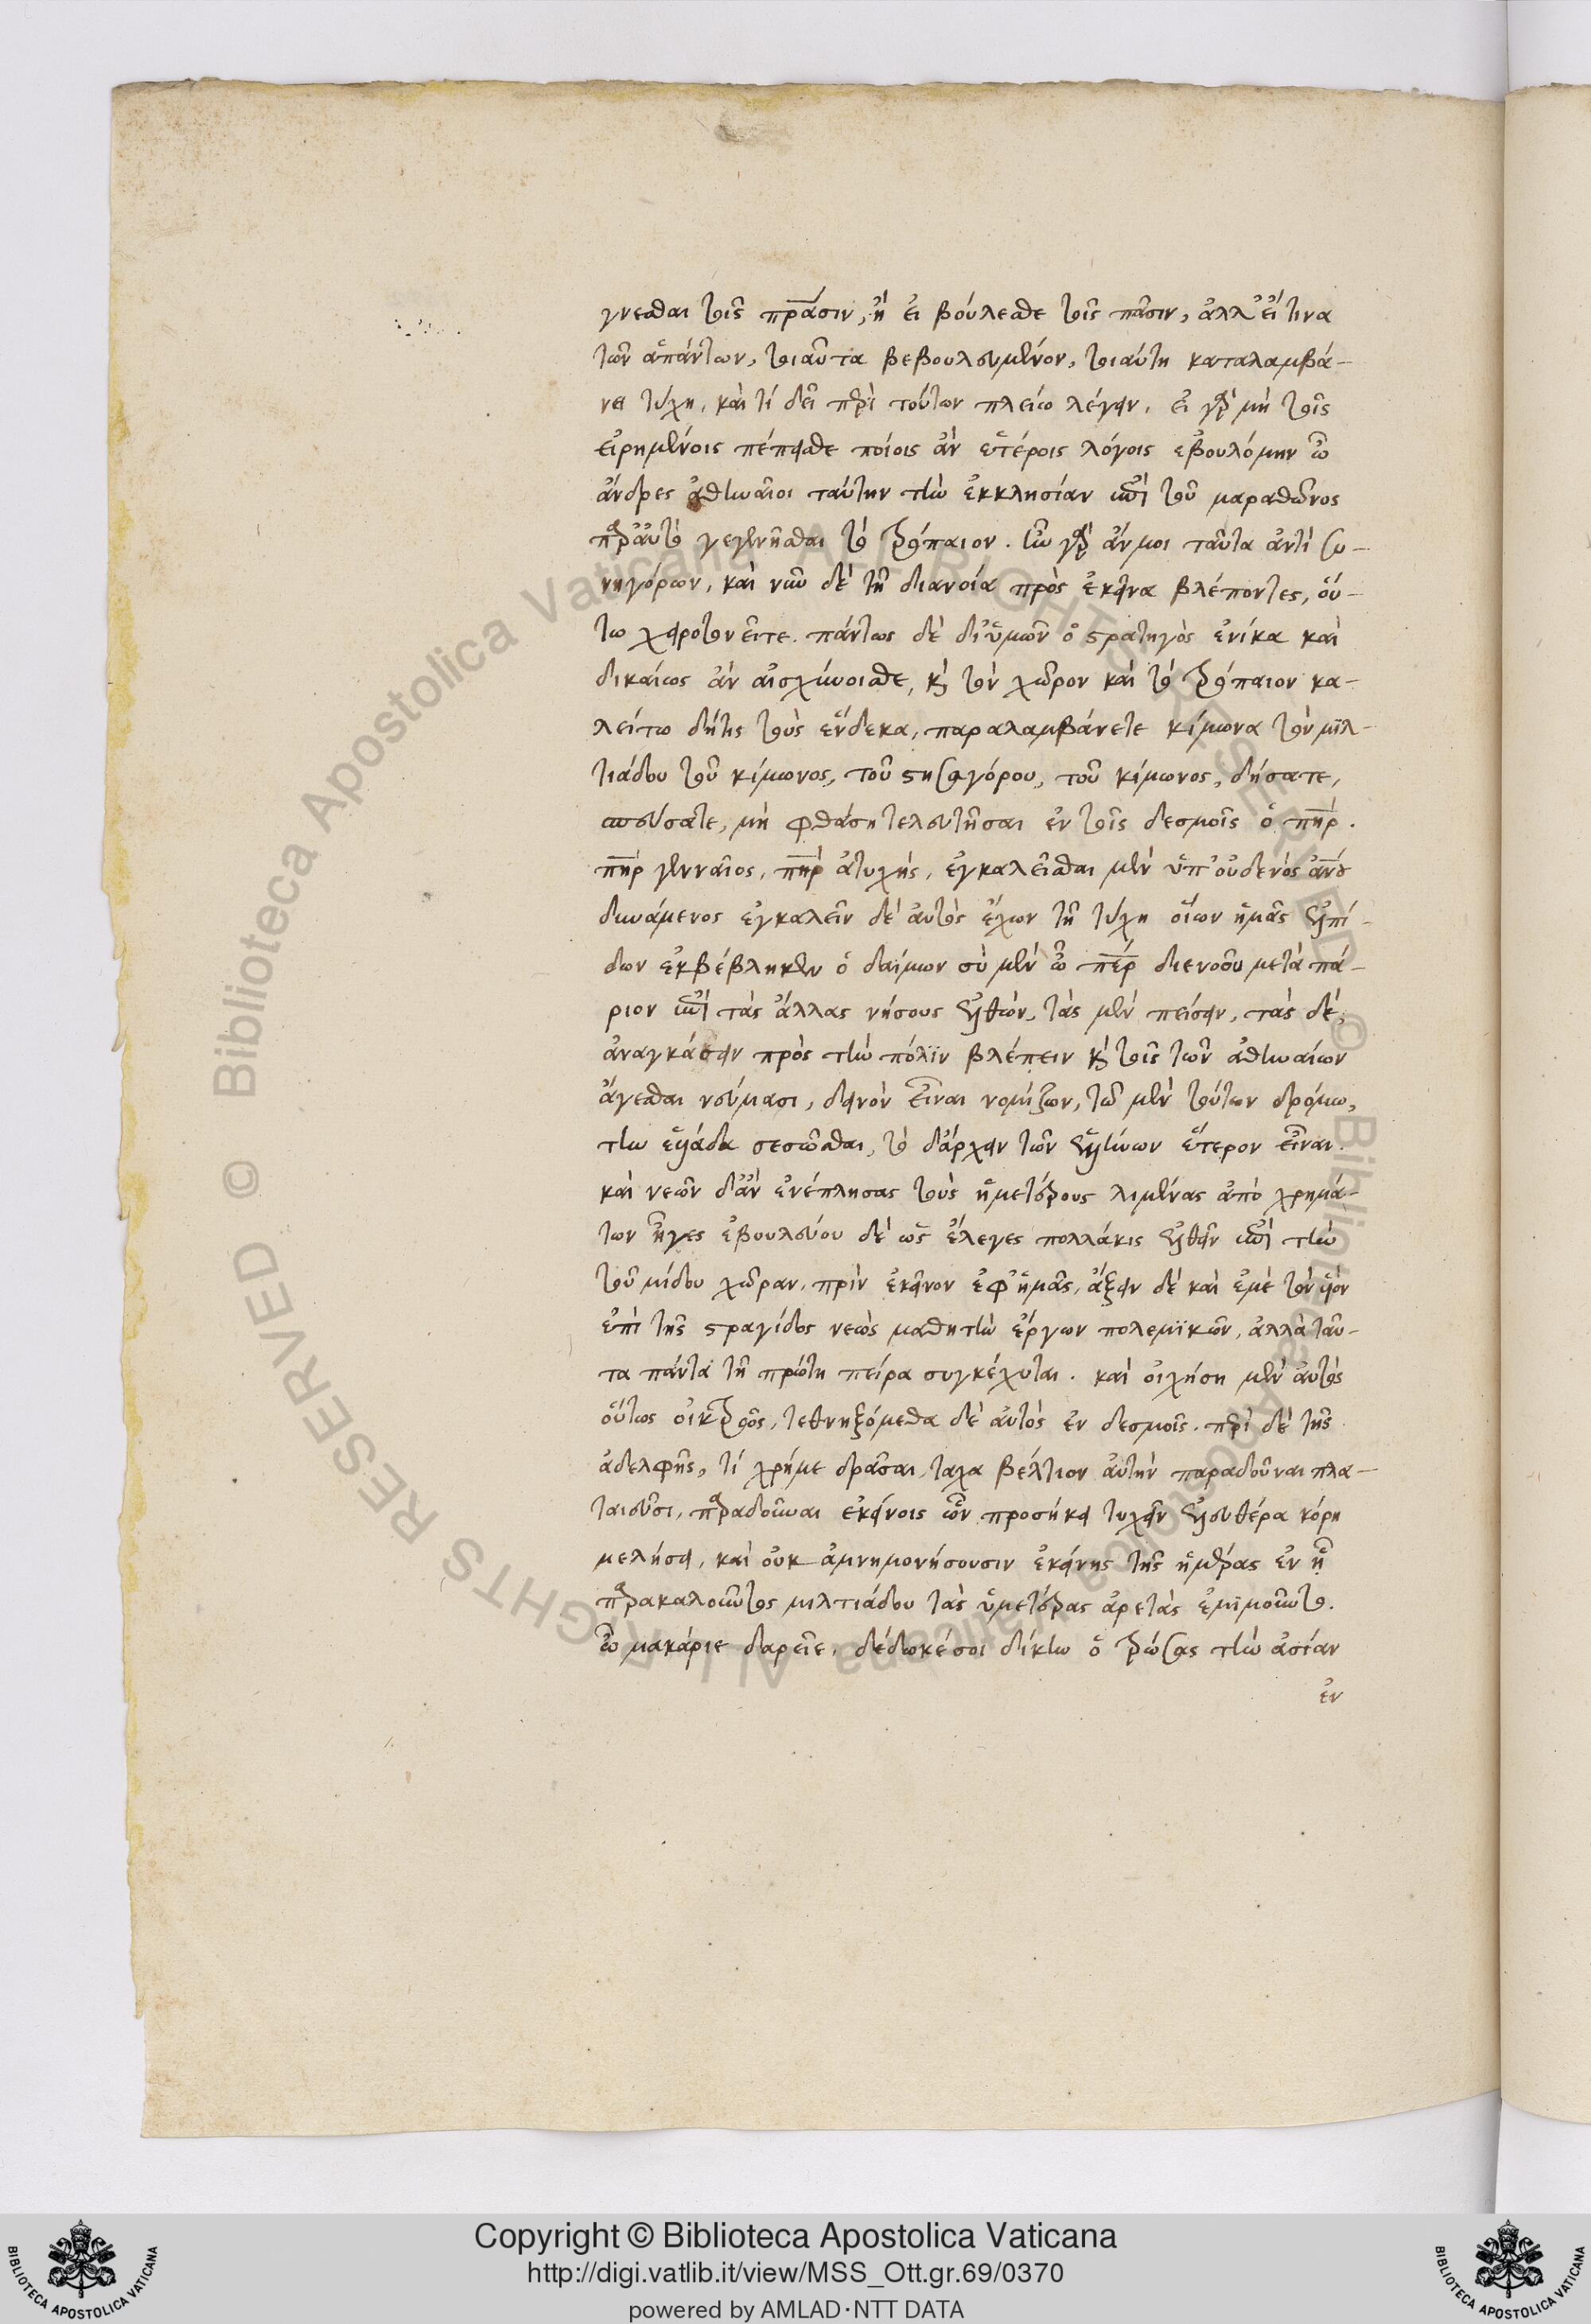 γνεσθαι τοῖς πράσιν, ἢ εἰ βούλεσθε τοῖς πᾶσιν, ἀλλ' εἴ τινα
τῶν ἁπάντων, τοιαῦτα βεβουλευμένον, τοιαύτη καταλαμβά-
νει τύχη, καὶ τί δεῖ περὶ τούτων πλείω λέγειν. εἰ γὰρ μὴ τοῖς
εἰρημένοις πέπεισθε ποίοις ἂν ἑτέροις λόγοις ἐβουλόμην ὦ
ἄνδρες ἀθηναῖοι ταύτην τὴν ἐκκλησίαν ἐπὶ τοῦ μαραθῶνος
παρ' αὐτὸ γεγενῆσθαι τὸ τρόπαιον. ἦν γὰρ ἄν μοι ταῦτα ἀντὶ συ-
νηγόρων, καὶ νῦν δὲ τῇ διανοία πρὸς ἐκεῖνα βλέποντες, οὕ-
τω χειροτονεῖτε. πάντως δὲ δι' ὑμῶν ὁ στρατηγὸς ἐνίκα καὶ
δικαίως ἂν αἰσχύνοισθε, καὶ τὸν χῶρον καὶ τὸ τρόπαιον κα-
λείτω δή τις τοὺς ἕνδεκα, παραλαμβάνετε κίμωνα τὸν μιλ-
τιάδου τοῦ κίμωνος, τοῦ στησαγόρου, τοῦ κίμωνος, δήσατε,
σπεύσατε, μὴ φθάση τελευτῆσαι ἐν τοῖς δεσμοῖς ὁ πηρ.
πηρ γενναῖος, πηρ ἀτυχής, ἐγκαλεῖσθαι μὲν ὑπ' οὐδενὸς ανου
δυνάμενος ἐγκαλεῖν δὲ αὐτὸς ἔχων τῇ τύχη οἵων ἡμᾶς ἐλπί-
δων ἐκβέβληκεν ὁ δαίμων σὺ μὲν ὦ περ διενοοῦ μετὰ πά-
ριον ἐπὶ τὰς ἄλλας νήσους ἐλθών, τὰς μὲν πείσειν, τὰς δέ,
ἀναγκάσειν πρὸς τὴν πόλιν βλέπειν καὶ τοῖς τῶν ἀθηναίων
ἄγεσθαι νεύμασι, δεινὸν εἶναι νομίζων, τῶ μὲν τούτων δρόμω,
τὴν ἑλλάδα σεσῶσθαι, τὸ δ' ἄρχειν τῶν ἑλλήνων ἕτερον εἶναι.
καὶ νεῶν δ' ἂν ἐνέπλησας τοὺς ἡμετέρους λιμένας ἀπὸ χρημά-
των ἦγες ἐβουλεύου δὲ ὡς ἔλεγες πολλάκις ἐλθεῖν ἐπὶ τὴν
τοῦ μίδου χῶραν, πρὶν ἐκεῖνον ἐφ' ἡμᾶς, ἄξειν δὲ καὶ ἐμὲ τὸν υἱὸν
ἐπὶ τῆς στραγίδος νεὼς μαθητὴν ἔργων πολεμικῶν, ἀλλὰ ταῦ-
τα πάντα τῇ πρώτη πείρα συγκέχυται. καὶ οἰχήση μὲν αὐτὸς
οὕτως οἰκτρῶς, τεθνηξόμεθα δὲ αὐτὸς ἐν δεσμοῖς. περὶ δὲ τῆς
ἀδελφῆς, τί χρή με δρᾶσαι, ταχα βέλτιον αὐτὴν παραδοῦναι πλα-
ταιεῦσι, παραδοῦναι ἐκείνοις ὧν προσήκει τυχεῖν ἐλευθέρα κόρη
μελήσει, καὶ οὐκ ἀμνημονήσουσιν ἐκείνης τῆς ἡμέρας ἐν ᾗ
παρακαλοῦντος μιλτιάδου τὰς ὑμετέρας ἀρετὰς ἐμιμοῦντο.
ὦ μακάριε δαρεῖε, δέδωκέ σοι δίκην ὁ τρώσας τὴν ἀσίαν
ἐν
Copyright © Biblioteca Apostolica Vaticana
http://digi.vatlib.it/view/MSS_Ott.gr.69/0370
powered by AMLAD·NTT DATA